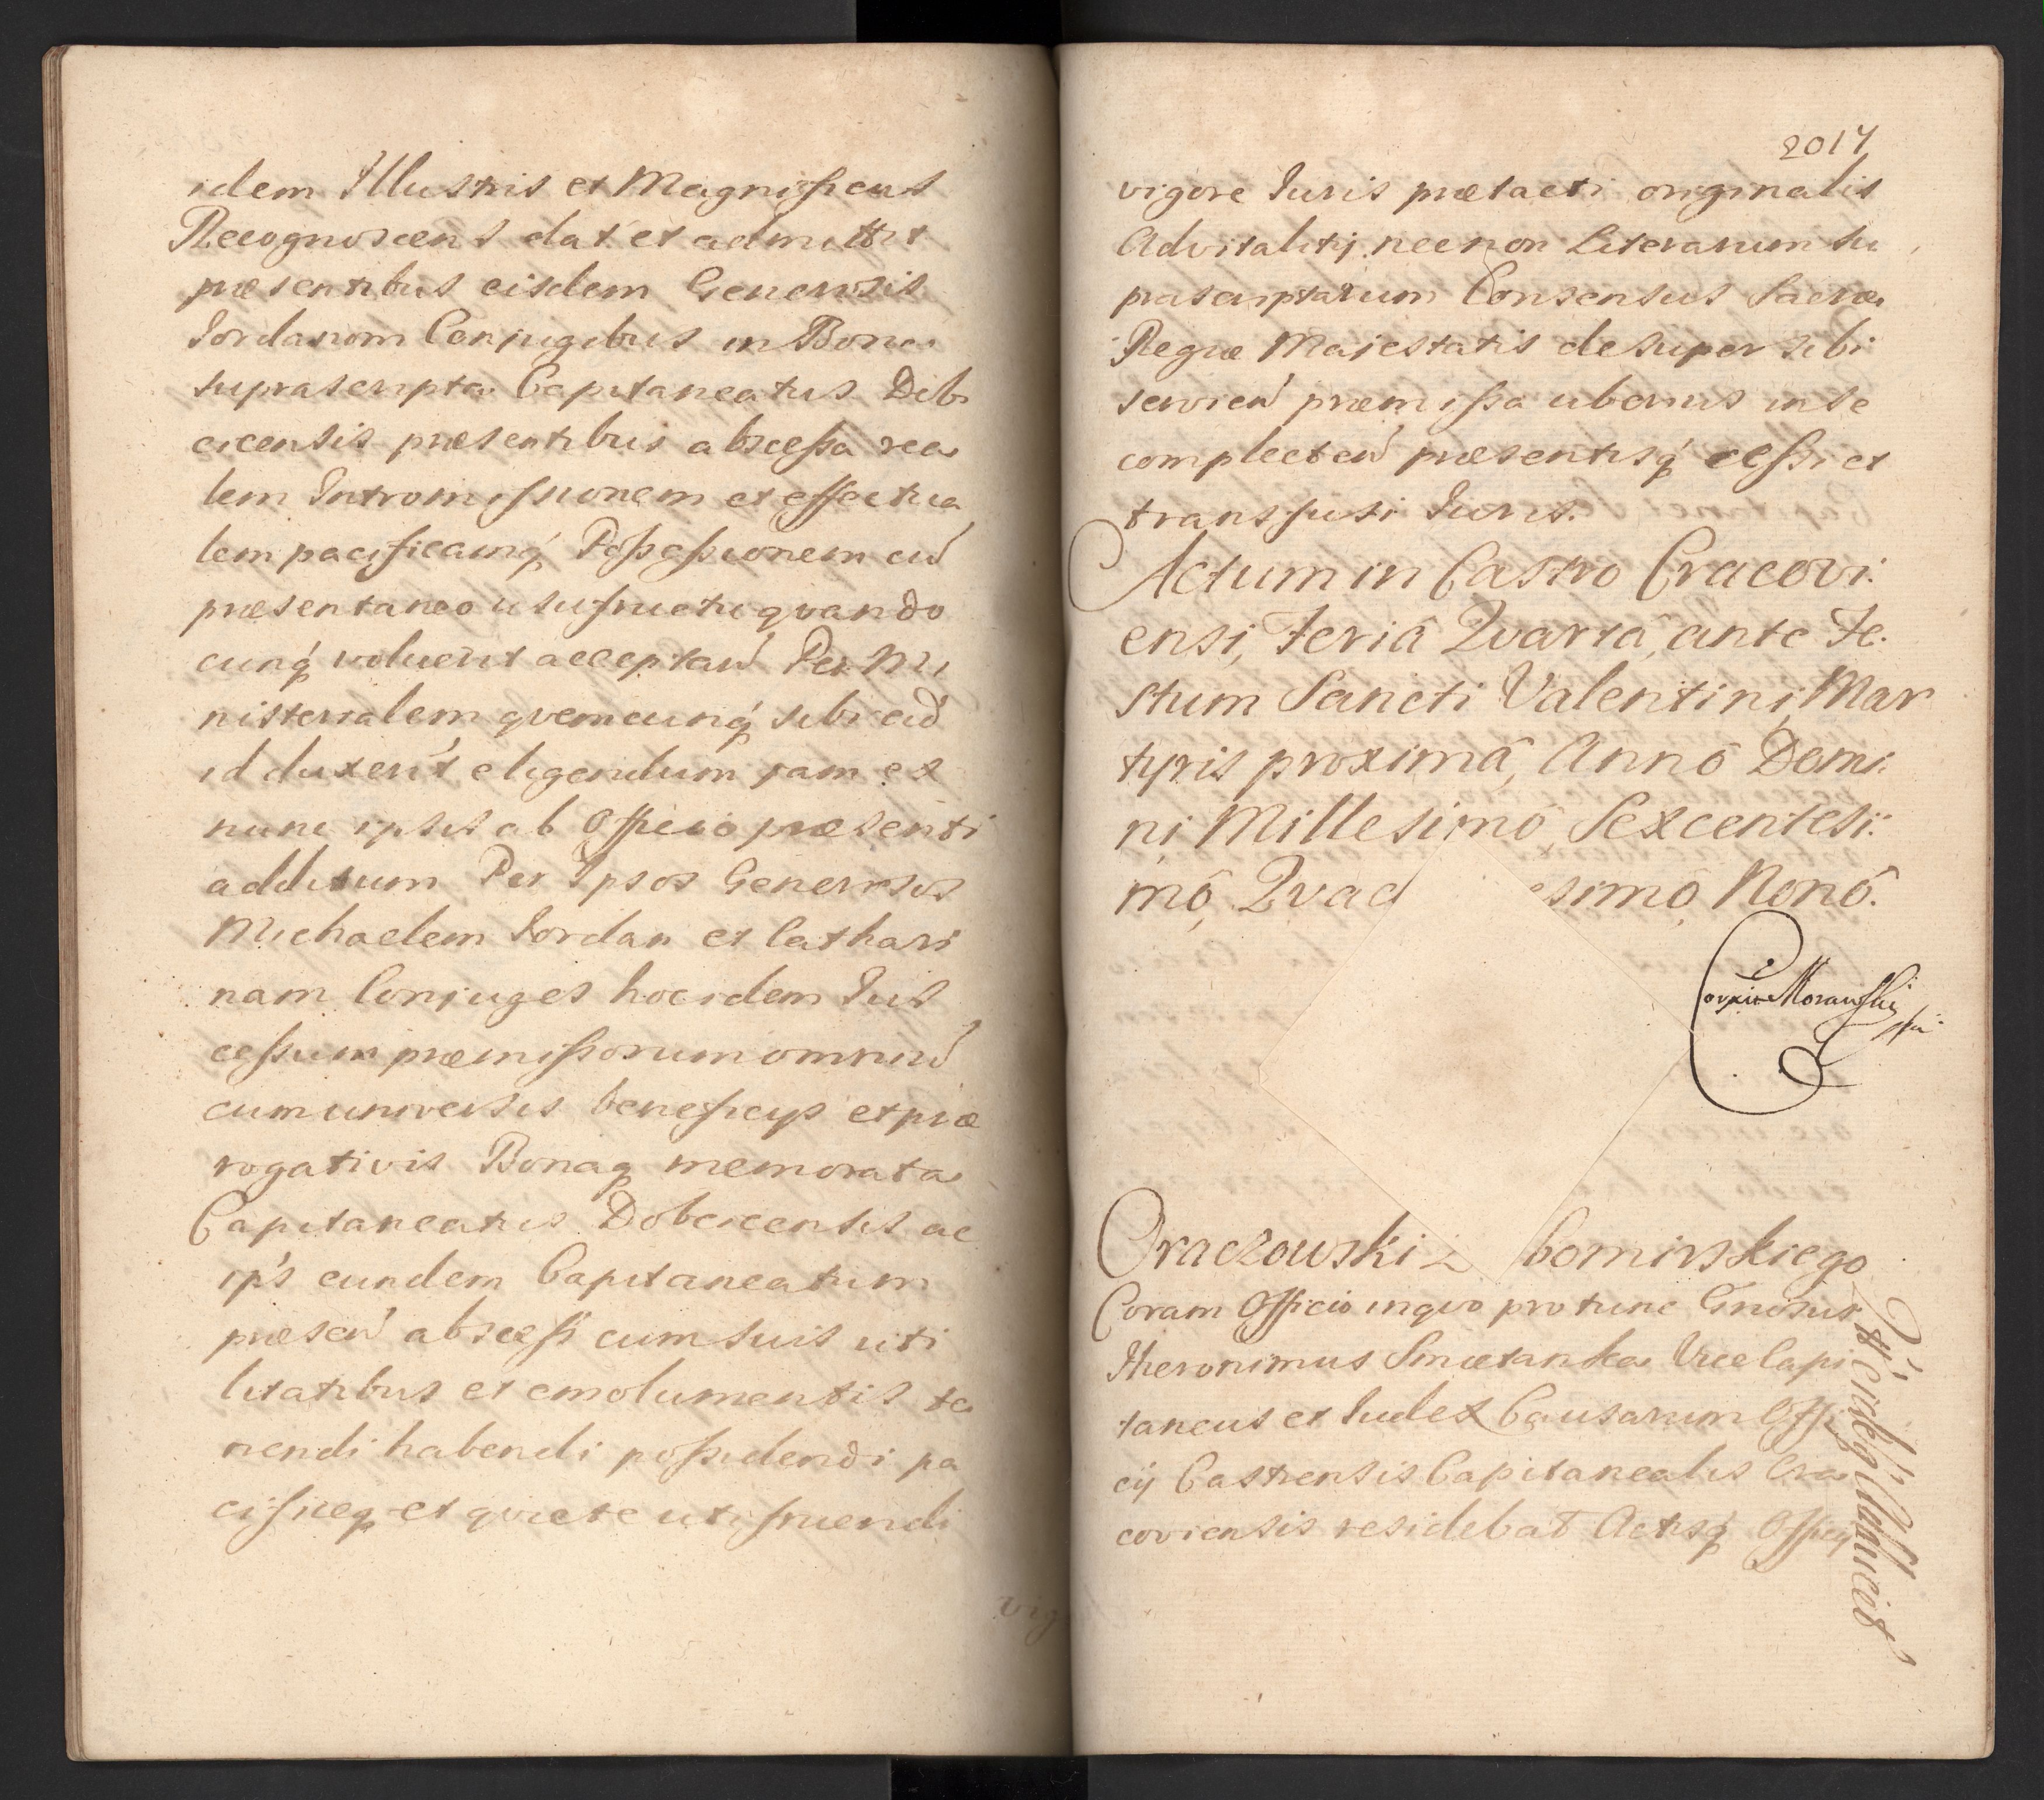 idem Illustris et Magnificus
Recognoscens dat et admittit
præsentibus eisdem Generosis
Iordanom Conjugibus in Bona
suprascripta Capitaneatus Dob
cicensis præsentibus abscessa rea
lem Intromissionem et effectua
lem pacificamq́ Possessionem cu͂
præsentaneo usufructu qvando
cunq́ voluerit acceptan͂ Per Mi
nisterialem qvemcunq́ sibi ad
id duxerit eligendum jam ex
nunc ipsis ab Officio præsenti
additum Per Ipsos Generosos
Michaelem Iordan et Cathari
nam Conjuges hoc idem Ius
cessum præmissorum omniu͂
cum universis beneficys et præ
rogativis Bonaq memorata
Capitaneatus Dobcicensis ac
ip͂s eundem Capitaneatum
præsen͂ abscessi cum suis uti
litatibus et emolumentis te
nendi habendi possidendi pa
cificeq et qviete utifruendi
vig
2017
vigore Iuris prætacti originalis
Advitalitij necnon Literarum su
prascriptarum Consensus Sacræ
Regiæ Majestatis desuper sibi
servien͂ præmissa uberius in se
complecten͂ præsentisq́ cessi et
transfusi Iuris.
Actum in Castro Cracovi:
ensi, Feriâ Qvartâ, ante Fe:
stum Sancti Valentini Mar
tyris proximâ, Annô Domi:
ni Millesimô Sexcentesi:
mô, Qvad esimô Nonô.
Corexit Morawski
Oraczowski z bomirskiego
Coram Officio in qvo pro tunc Gn͂osus
Hieronimus Smietanka Vice Capi
taneus et Iudex Causarum Offi
cij Castrensis Capitanealis Cra
coviensis residebat Actisq́ Officy